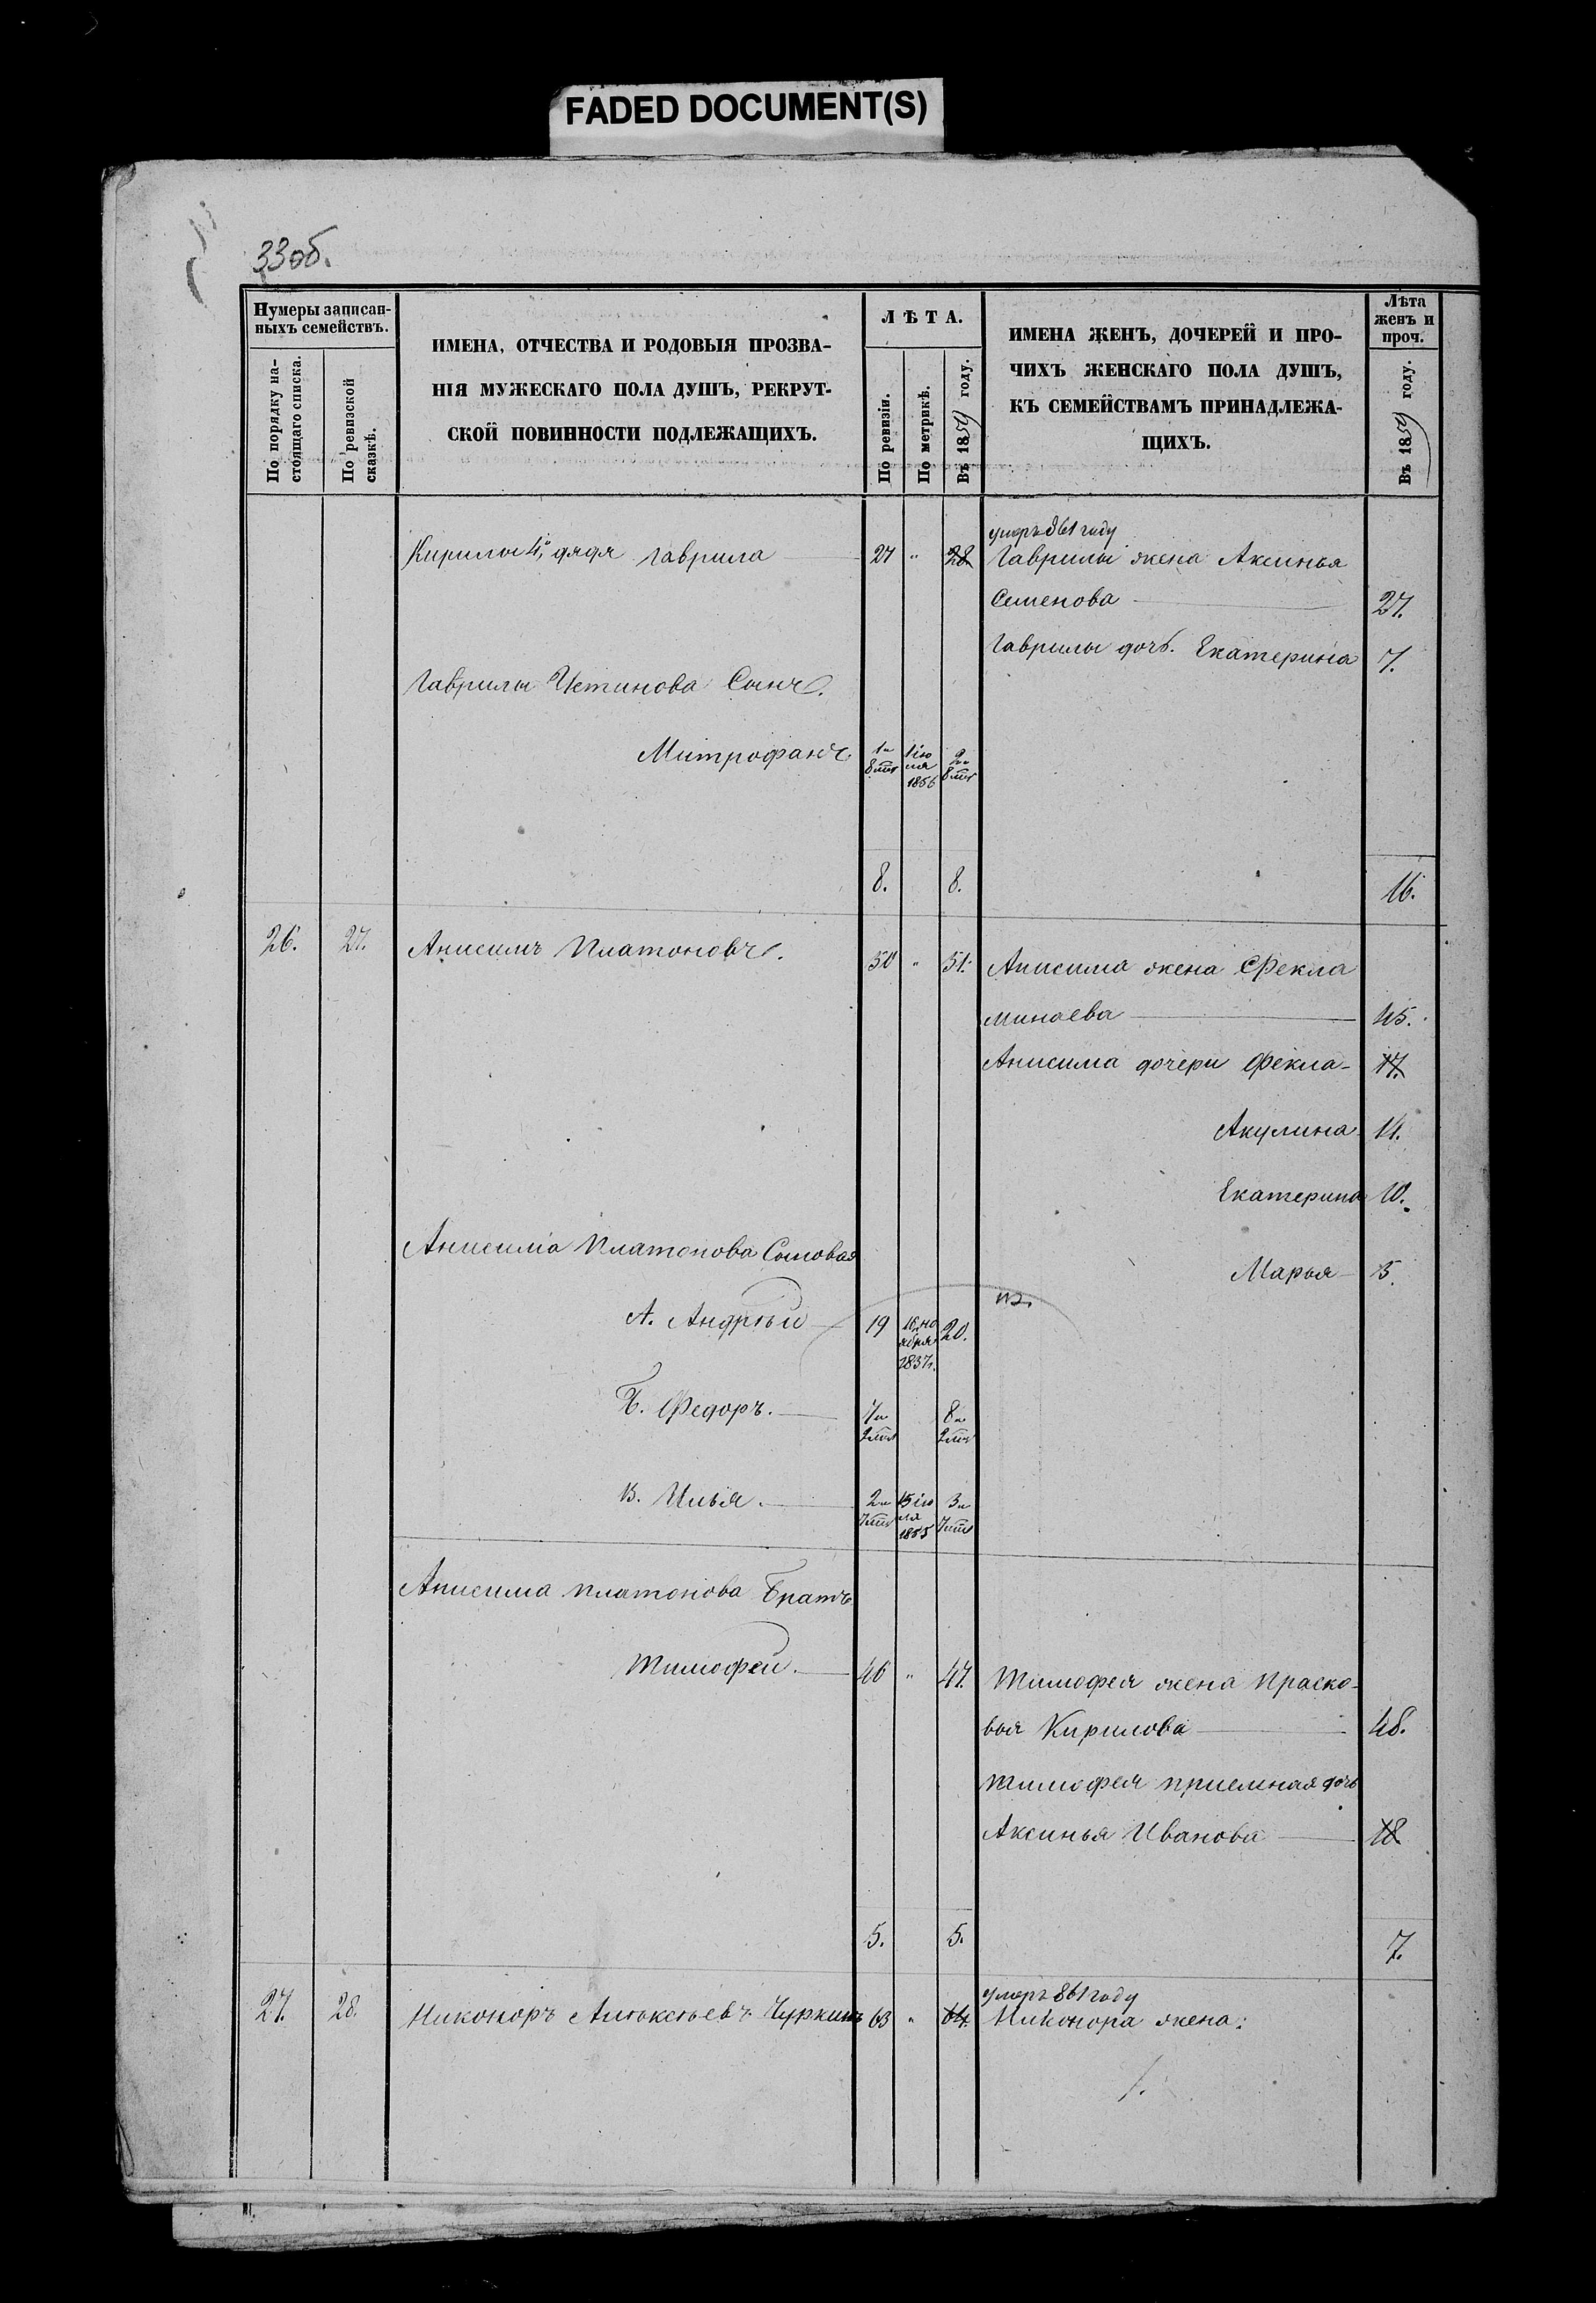 FADED DOCUMENT(S)
33 об.
Нумеры записан-
ныхъ семействъ.
По порядку на-
стоящаго списка.
По ревизской
сказкѣ.
ИМЕНА, ОТЧЕСТВА И РОДОВЫЯ ПРОЗВА-
НІЯ МУЖЕСКАГО ПОЛА ДУШЪ, РЕКРУТ-
СКОЙ ПОВИННОСТИ ПОДЛЕЖАЩИХЪ.
ЛѢТА.
По ревизіи.
По метрикѣ.
Въ 1859 году.
ИМЕНА ЖЕНЪ, ДОЧЕРЕЙ И ПРО-
ЧИХЪ ЖЕНСКАГО ПОЛА ДУШЪ,
КЪ СЕМЕЙСТВАМЪ ПРИНАДЛЕЖА-
ЩИХЪ.
Лѣта
женъ и
проч.
Въ 1859 году.
умеръ 861 году
Кирилы 4, дядя Гаврила 27 " 28 Гаврилы жена Аксинья
Семенова 27.
Гаврилы дочь. Екатерина 7.
Гаврилы Устинова Сынъ.
Митрофанъ 1 и 8 мес 1 ію
ля
1856 2 и 8 мес
8. 8. 16.
26. 27. Анисимъ Платоновъ. 50 " 51. Анисима жена Фекла
минаева 45.
Анисима дочери Фекла 17.
Акулина 14.
Екатерина 10.
Анисима Платонова Сыновья
Марья 5.
А. Андрѣй 19 16 но
ября
1837 г. 20.
Б. Федоръ. 7 и 2 мес 8 и 2 мес
В. Илья. 2 и 7 мес 15 ію
ля
1855 3 и 7 мес
Анисима Платонова Братъ
Тимофей. 46 " 47. Тимофея жена Праско-
вья Кирилова 48.
Тимофея приемная дочь
Аксинья Иванова 18
5. 5. 7.
умеръ 861 году
27. 28. Никоноръ Алѣксѣевъ Чуркинъ 63 " 64. Никонора жена: